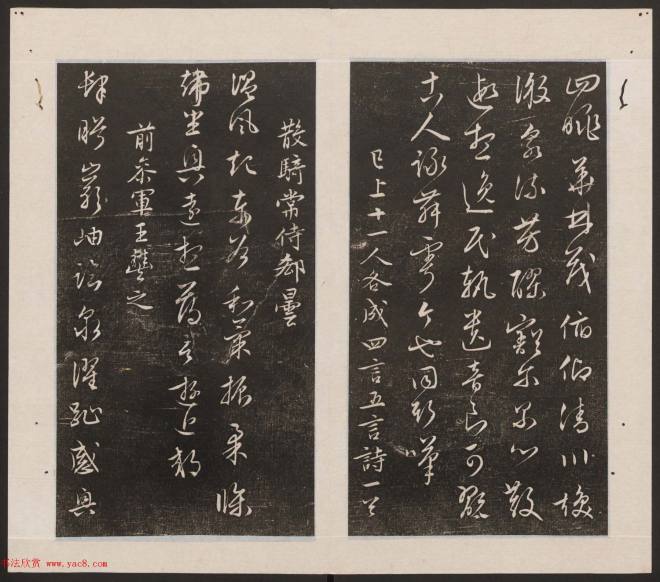 四眺華林茂俯仰清川渙
激泉流芳醪豁尔累心散
遐想逸民軌遺音良可翫
古人詠舞雩今也同斯嘆
已上十一人各成四言五言詩一首
散騎常侍郗曇
溫風起東谷和氣振柔條
端坐興遠想薄言遊近郊
前參軍王豐之
肆眄巖岫臨泉濯趾感興
书法欣赏 www.yac8.com